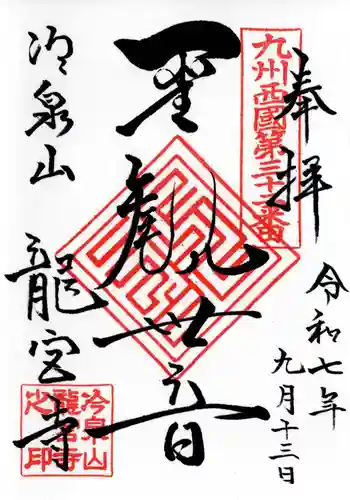 奉拝
九州西國第三十三番
令和七年
九月十三日
聖観世音
冷泉山
龍宮寺
冷泉山
龍宮寺
之印